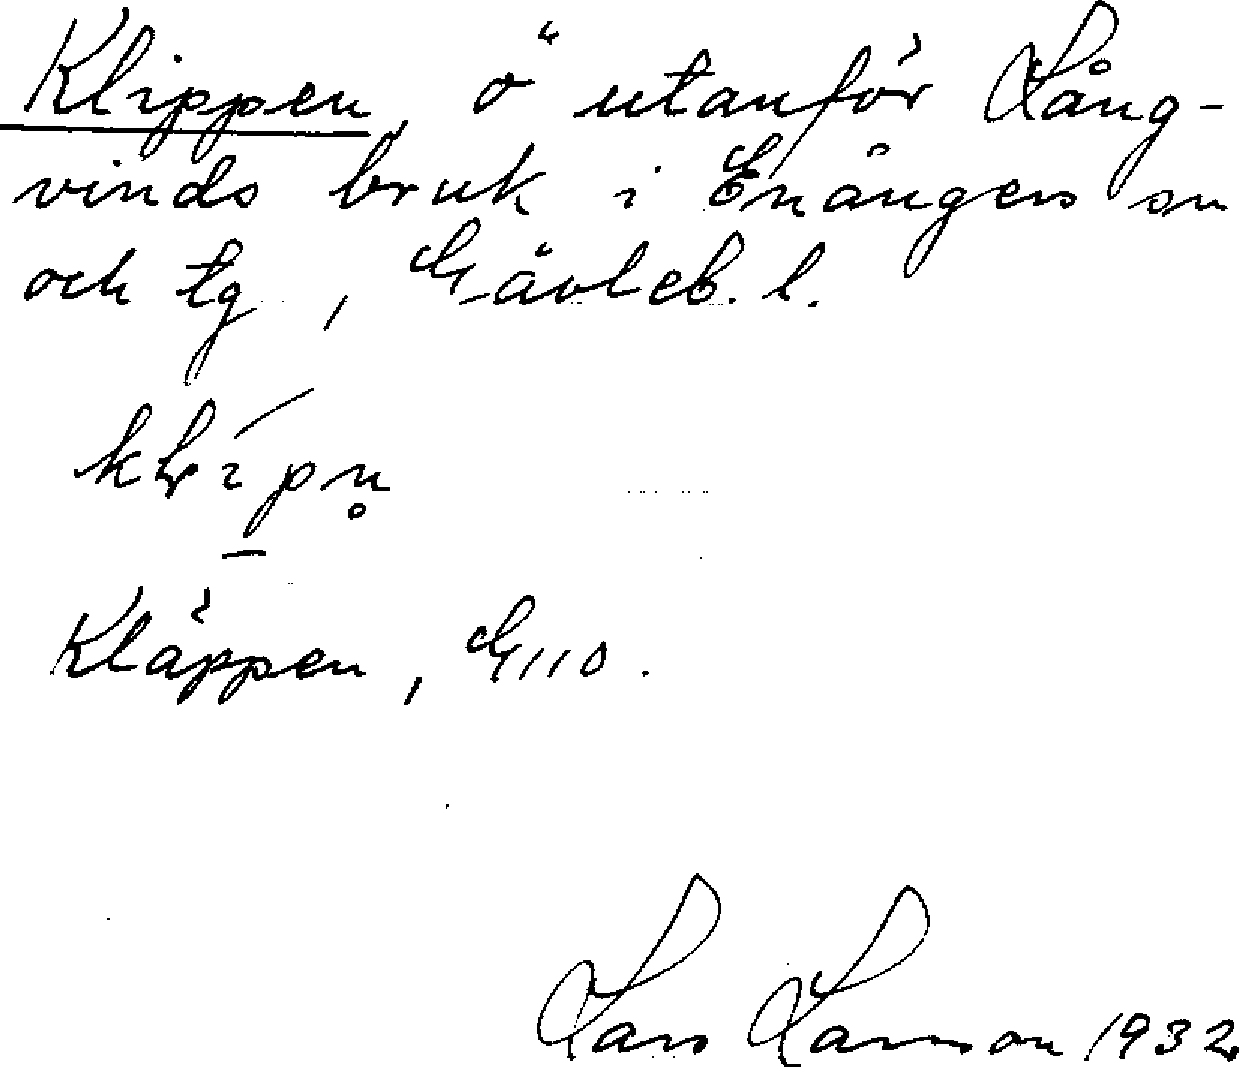 Klippen, ö utanför Lång-
vinds bruk i Enångers sn
och tg, Gävleb. l.
Kläppen, G110.
Lars Larsson 1932